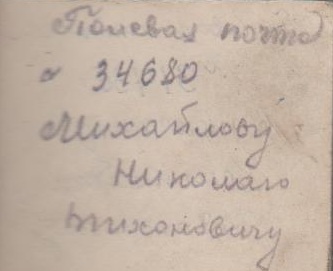 Полевая почта
№ 34680
Михайлову
Николаю
Тихоновичу